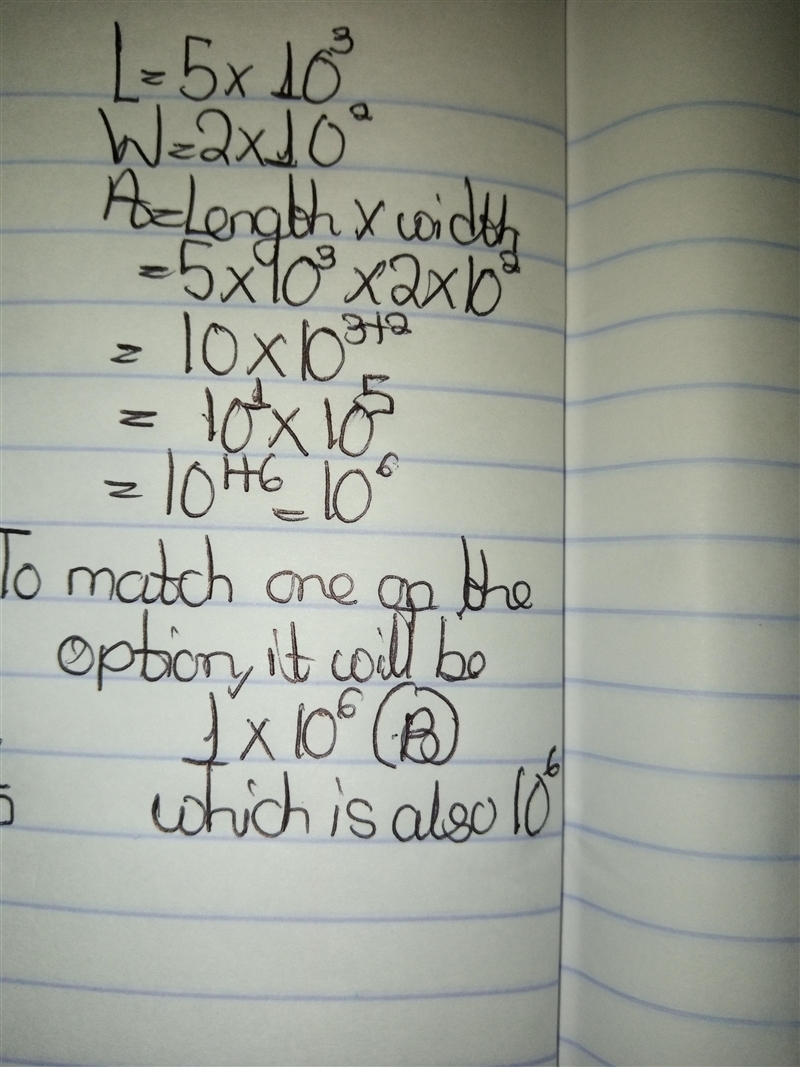 L = 5 × 10³
W = 2 × 10²
A = Length × width
= 5 × 10³ × 2 × 10²
= 10 × 10³⁺²
= 10¹ × 10⁵
= 10¹⁺⁶ = 10⁶
To match one op the
option, it will be
1 × 10⁶ (B)
which is also 10⁶